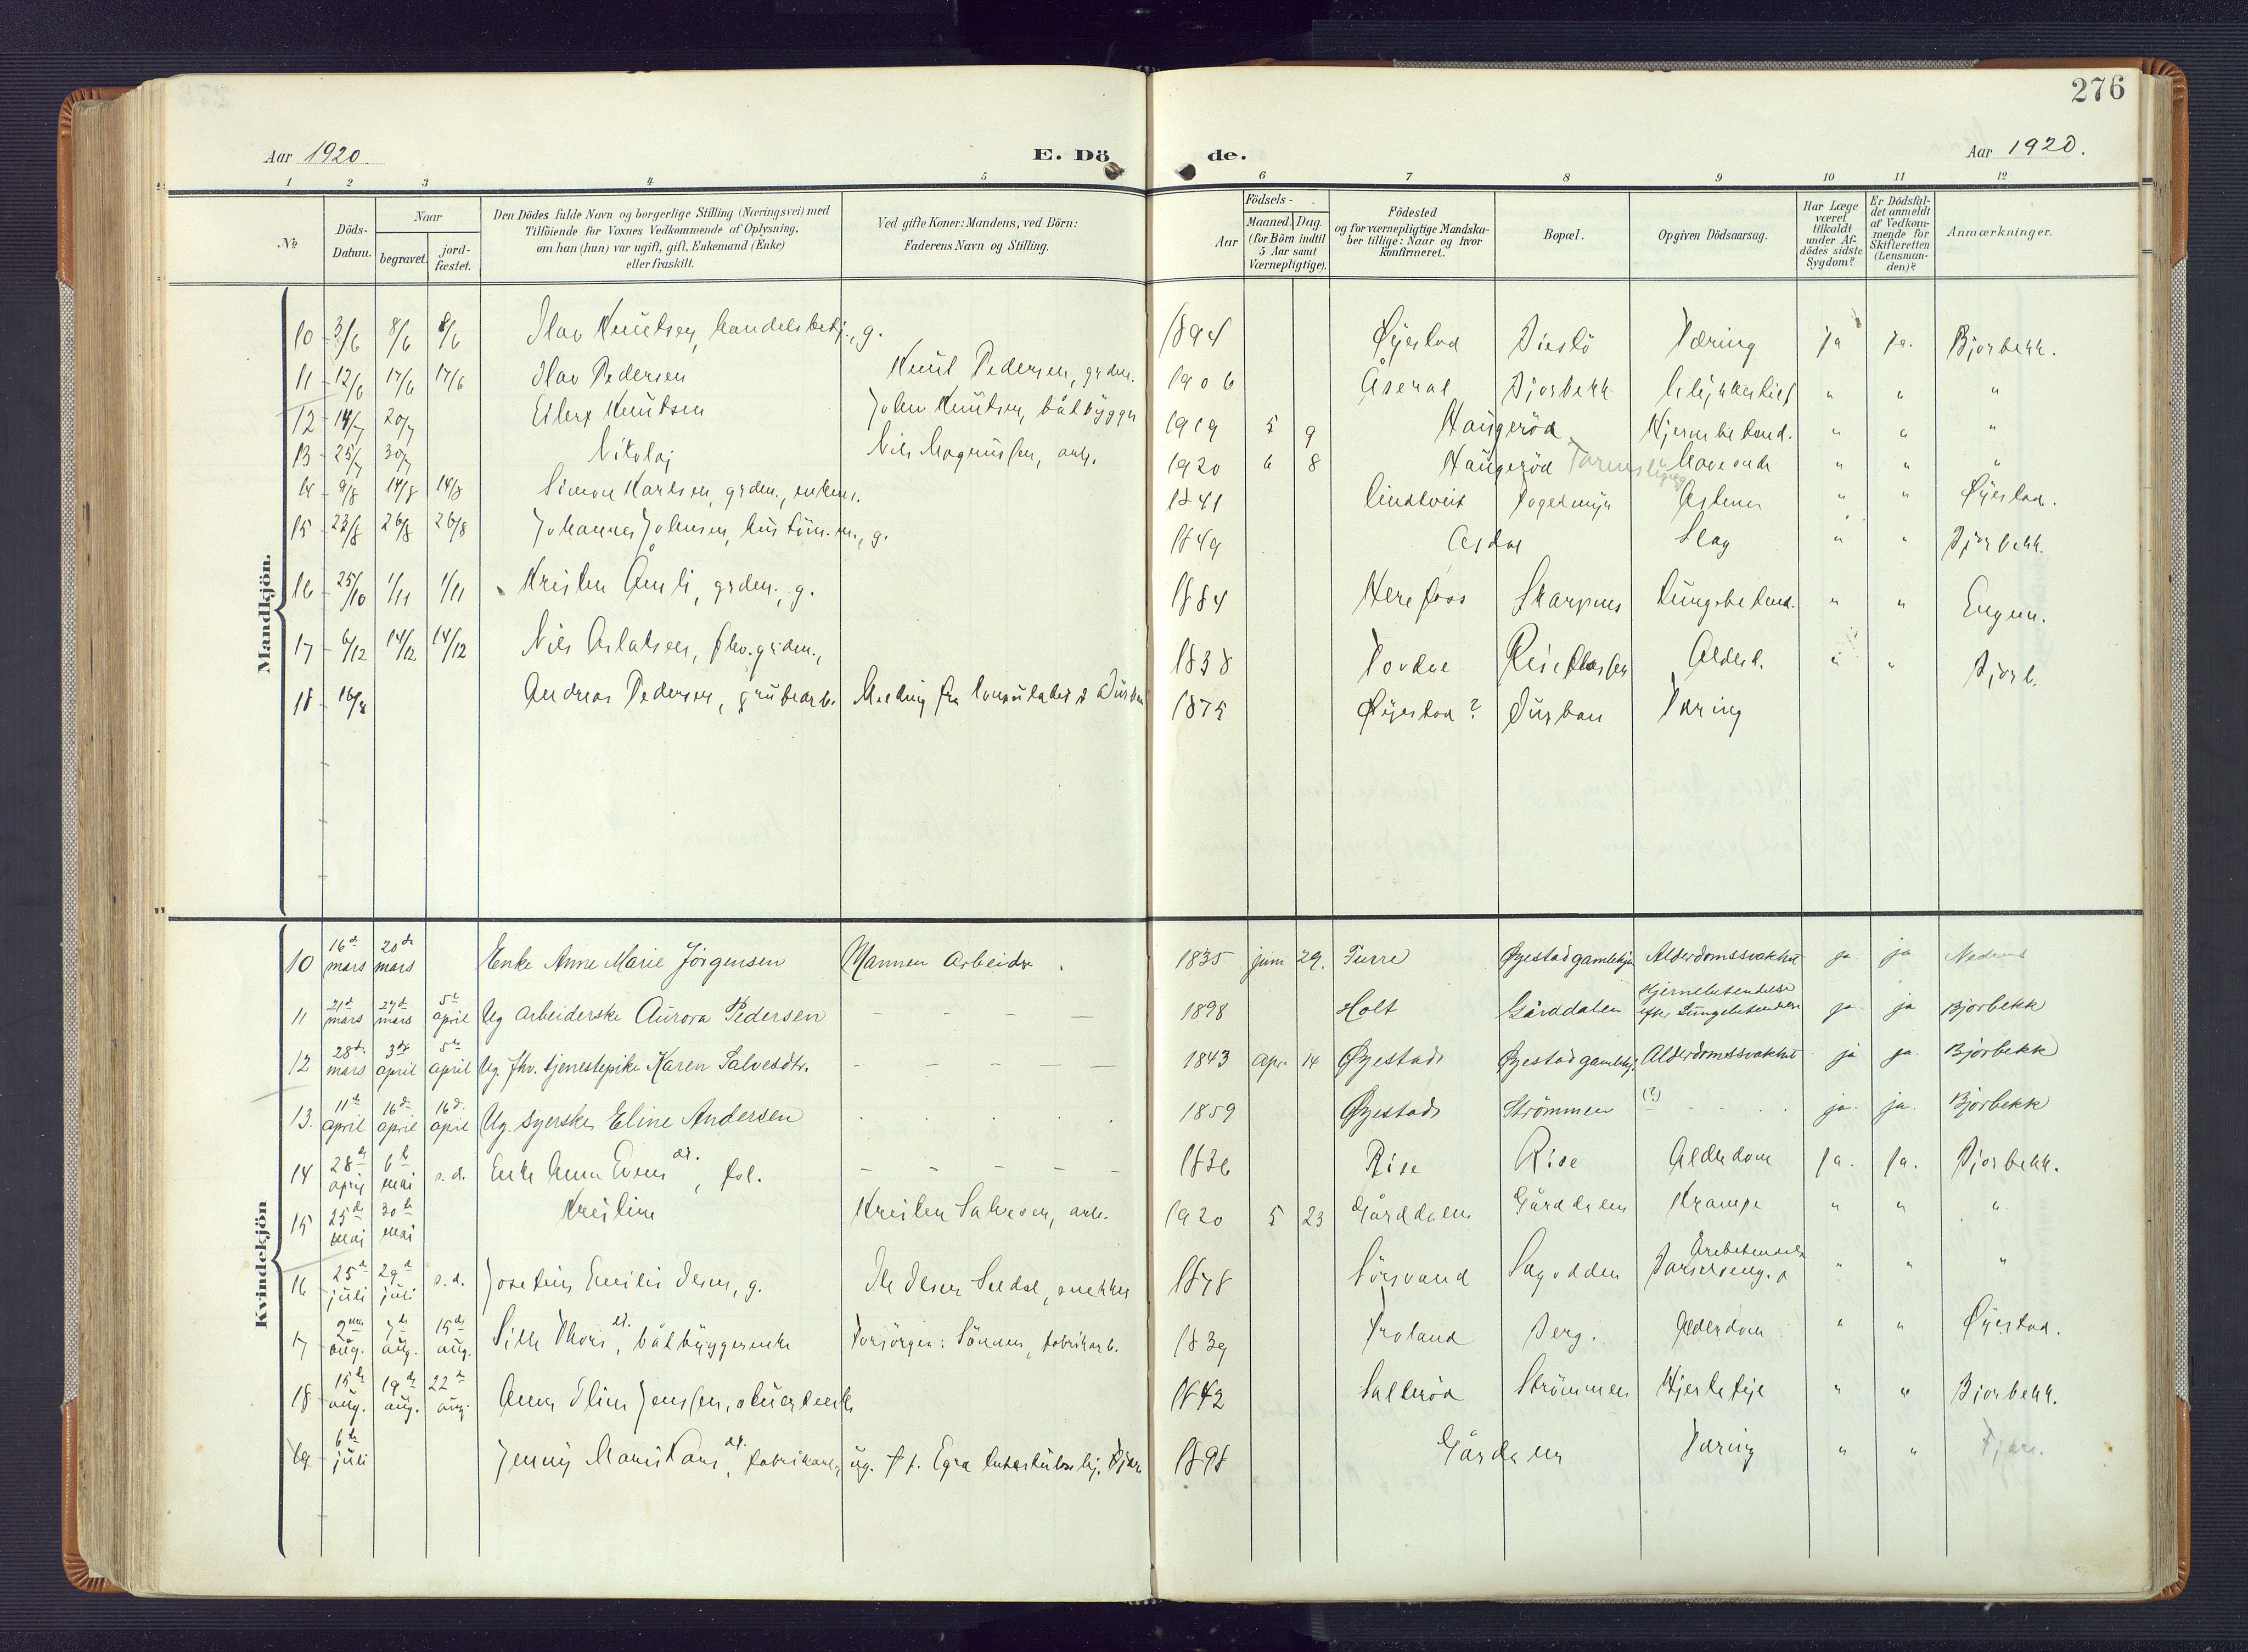 276
Aar 1920.
E. Dö de.
Aar 1920.
1 2 3 4 5 6 7 8 9 10 11 12
No
Döds-Datum.
Naar
begravet.
jord-fæstet.
Den Dödes fulde Navn og borgerlige Stilling (Næringsvei) med
Tilföiende for Voxnes Vedkommende af Oplysning,
om han (hun) var ugift, gift, Enkemand (Enke)
eller fraskilt.
Ved gifte Koner: Mandens, ved Börn:
Faderens Navn og Stilling.
Födsels-
Aar
Maaned. Dag.
(for Börn indtil
5 Aar samt
Værnepligtige).
Födested
og for værnepligtige Mandska-
ber tillige: Naar og hvor
konfirmeret.
Bopæl.
Opgiven Dödsaarsag.
Har Læge
været
tilkaldt
under Af-
dödes sidste
Sygdom?
Er Dödsfal-
det anmeldt
af Vedkom-
mende for
Skifteretten
(Lensman-
den)?
Anmærkninger.
Mandkjön.
10 3/6 8/6 8/6 Olav Knutsen, handelsbetj., g. 1894 Øyestad Tæring ja ja. Bjorbekk.
11 12/6 17/6 17/6 Olav Pedersen Knut Pedersen, grdm. 1906 Åseral Bjorbekk " " "
12 14/7 20/7 Eilert Knutsen John Knutsen, båtbygger 1919 5 9 Haugerød Hjernebetend. " " "
13 25/7 30/7 Nikolaj Nils Magnussen, arb. 1920 6 8 Haugerød Mavesond " " "
14 9/8 14/8 14/8 Simon Karlsen, grdm., enkem. 1841 Lindtveit Fogedmyr Astma " " Øyestad.
15 23/8 26/8 26/8 Johannes Johnsen, hustöm.m., g. 1849 Asdal Slag " " Bjorbekk.
16 25/10 1/11 1/11 Kristen Åmli, grdm., g. 1884 Herefoss Skarpnes Lungebetend. " " Engen.
17 6/12 14/12 14/12 Nils Aslaksen, fhv. grdm., 1838 Alderd. " " Bjorb.
18 16/8 Andreas Pedersen, grubearb. Melding fra konsulatet i Durban 1875 Øyestad? Durban Tæring
Kvindekjön
10 16de mars 20de mars Enke Anne Marie Jörgensen Mannen Arbeider. 1835 juni 29. Øyestad gamlehjem Alderdomssvakhet ja ja Nedenes
11 21de mars 27de mars 5te april Ug arbeiderske Aurora Pedersen – – – – 1898 Holt Gårddalen Hjernebetendelse efter Lungebetendelse ja ja Bjorbekk
12 28de mars 3die april 5te april Ug. fhv. tjenestepike Karen Salvesdtr. – – – – – 1843 Apr. 14 Øyestad Øyestad gamlehj. Alderdomssvakhet ja ja Bjorbekk
13. 11te april 16de april 16de april Ug. syerske Eline Andersen 1859 Øyestad Strömmen (?) ja. ja. Bjorbekk
14 28de april 6te mai s.d. Enke Anna Evensdt., fol. – – – – – 1836 Rise Rise Alderdom ja. ja. Bjorbekk.
15 25de mai 30te mai Kristine Kristen Salvesen, arb. 1920 5 23 Gårddalen Gårddalen Krampe " " "
16 25de juli 29de juli s.d. Josefine Emilie Olsen, g. Ole Olsen Seldal, snekker 1878 Sörsvand Sagodden Barselseng. Årebetendelse " " "
17 2nen aug. 7de aug. 15de aug. Sille Thorsdt., båtbyggerenke Forsörges: Sönnen, fabrikarb. 1839 Froland Berg. Alderdom " " Øyestad.
18 15de aug. 19de aug. 22de aug. Anna Oline Jenssen, 1842 Salteröd Strömmen Hjertefeil " " Bjorbekk.
19 6te juli Jenny Marie fabrikarb., ug. 1898 Gårdalen Tæring " "